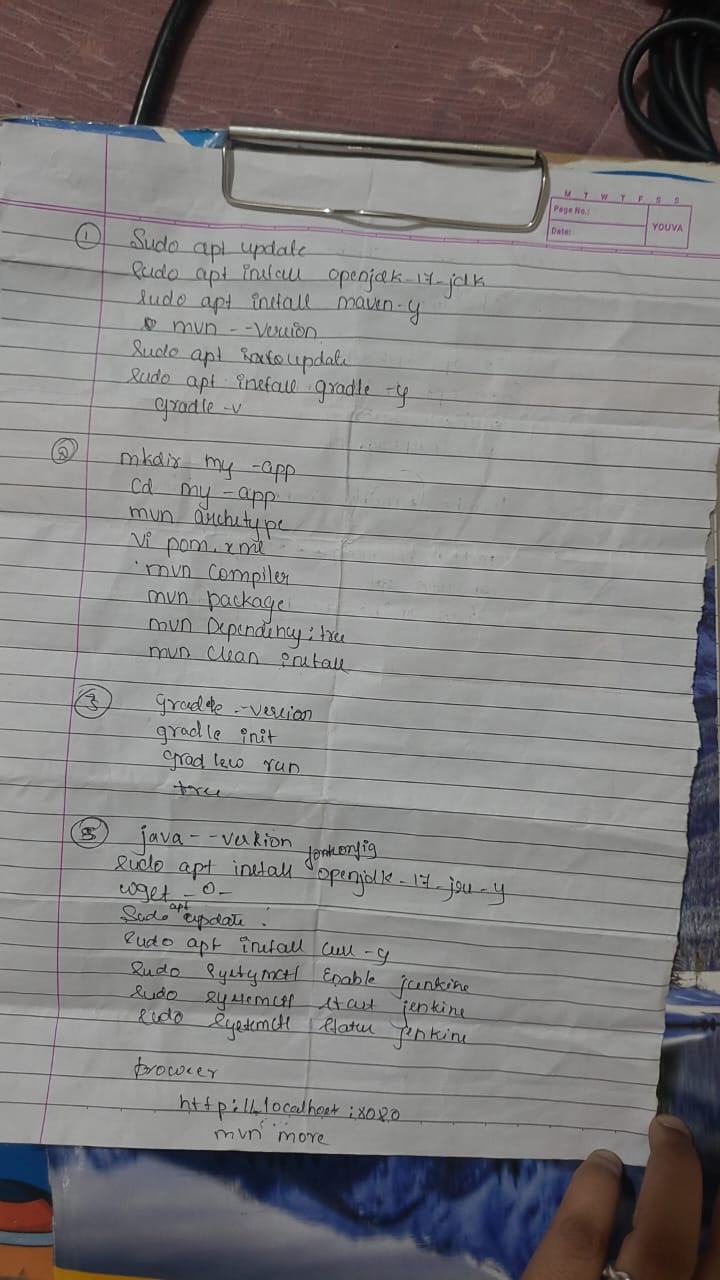 M T W T F S S
Page No.:
Date:
YOUVA
① Sudo apt update
Sudo apt install openjdk-17-jdk
Sudo apt install maven-y
mvn --version
Sudo apt update
Sudo apt install gradle -y
gradle -v
② mkdir my -app
Cd my -app
mvn archetype
Vi pom.xml
mvn Compiler
mvn package
mvn Dependency:tree
mvn Clean install
③ gradle --version
gradle init
gradlew run
tree
⑤ java --version
fontconfig
Sudo apt install openjdk-17-jre-y
wget -O-
Sudo apt update
Sudo apt install curl -y
Sudo Systemctl Enable jenkins
Sudo systemctl start jenkins
Sudo Systemctl Status jenkins
browser
http://localhost:8080
mvn more